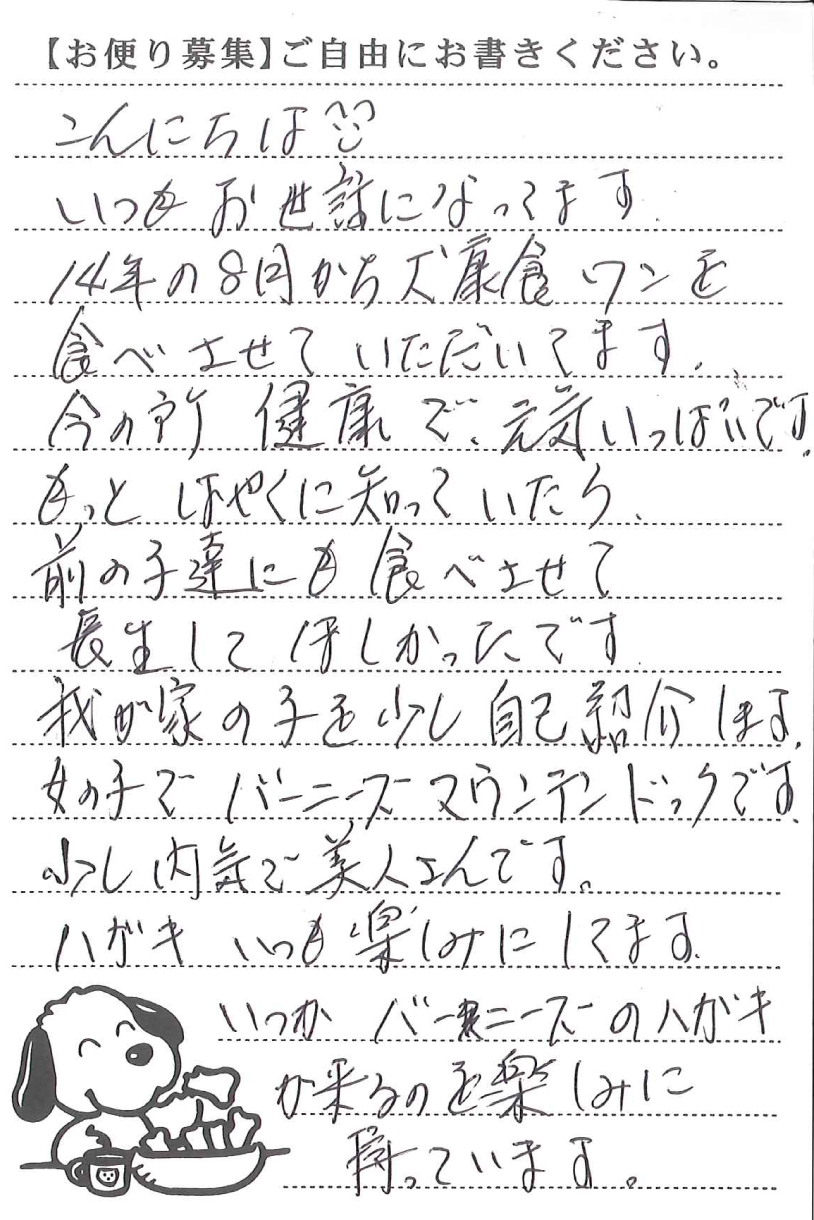 【お便り募集】ご自由にお書きください。
こんにちは
いつも お世話になってます.
14年の8月から犬康食ワンを
食べさせて いただいてます.
今の所 健康で、元気いっぱいです.
もっと はやくに知っていたら、
前の子達にも 食べさせて
長生して ほしかったです.
我が家の子を少し 自己紹介します.
女の子で バーニーズマウンテンドックです.
少し内気で美人さんです。
ハガキ いつも楽しみにしてます.
いつか バーニーズのハガキ
が来るのを楽しみに
待っています。